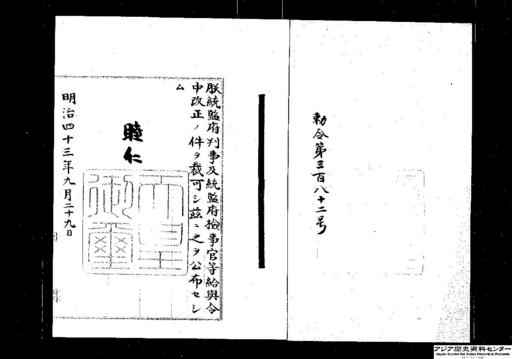 勅令第三百八十二号
朕統監府判事及統監府検事官等給與令
中改正ノ件ヲ裁可シ茲ニ之ヲ公布セシ
ム
睦仁
天皇
御璽
明治四十三年九月二十九日
アジア歴史資料センター
Japan Center for Asian Historical Records